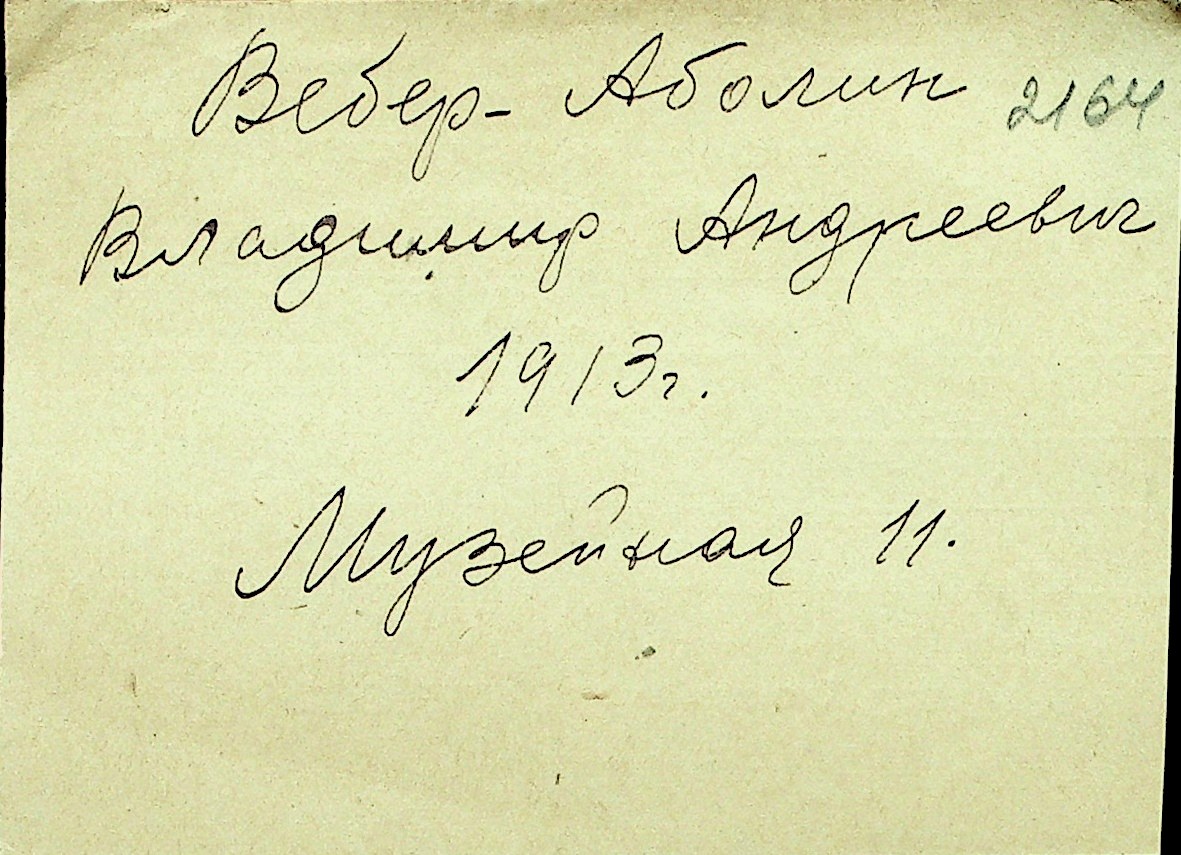 Вебер- Аболин 2164
Владимир Андреевич
1913г.
Музейная 11.